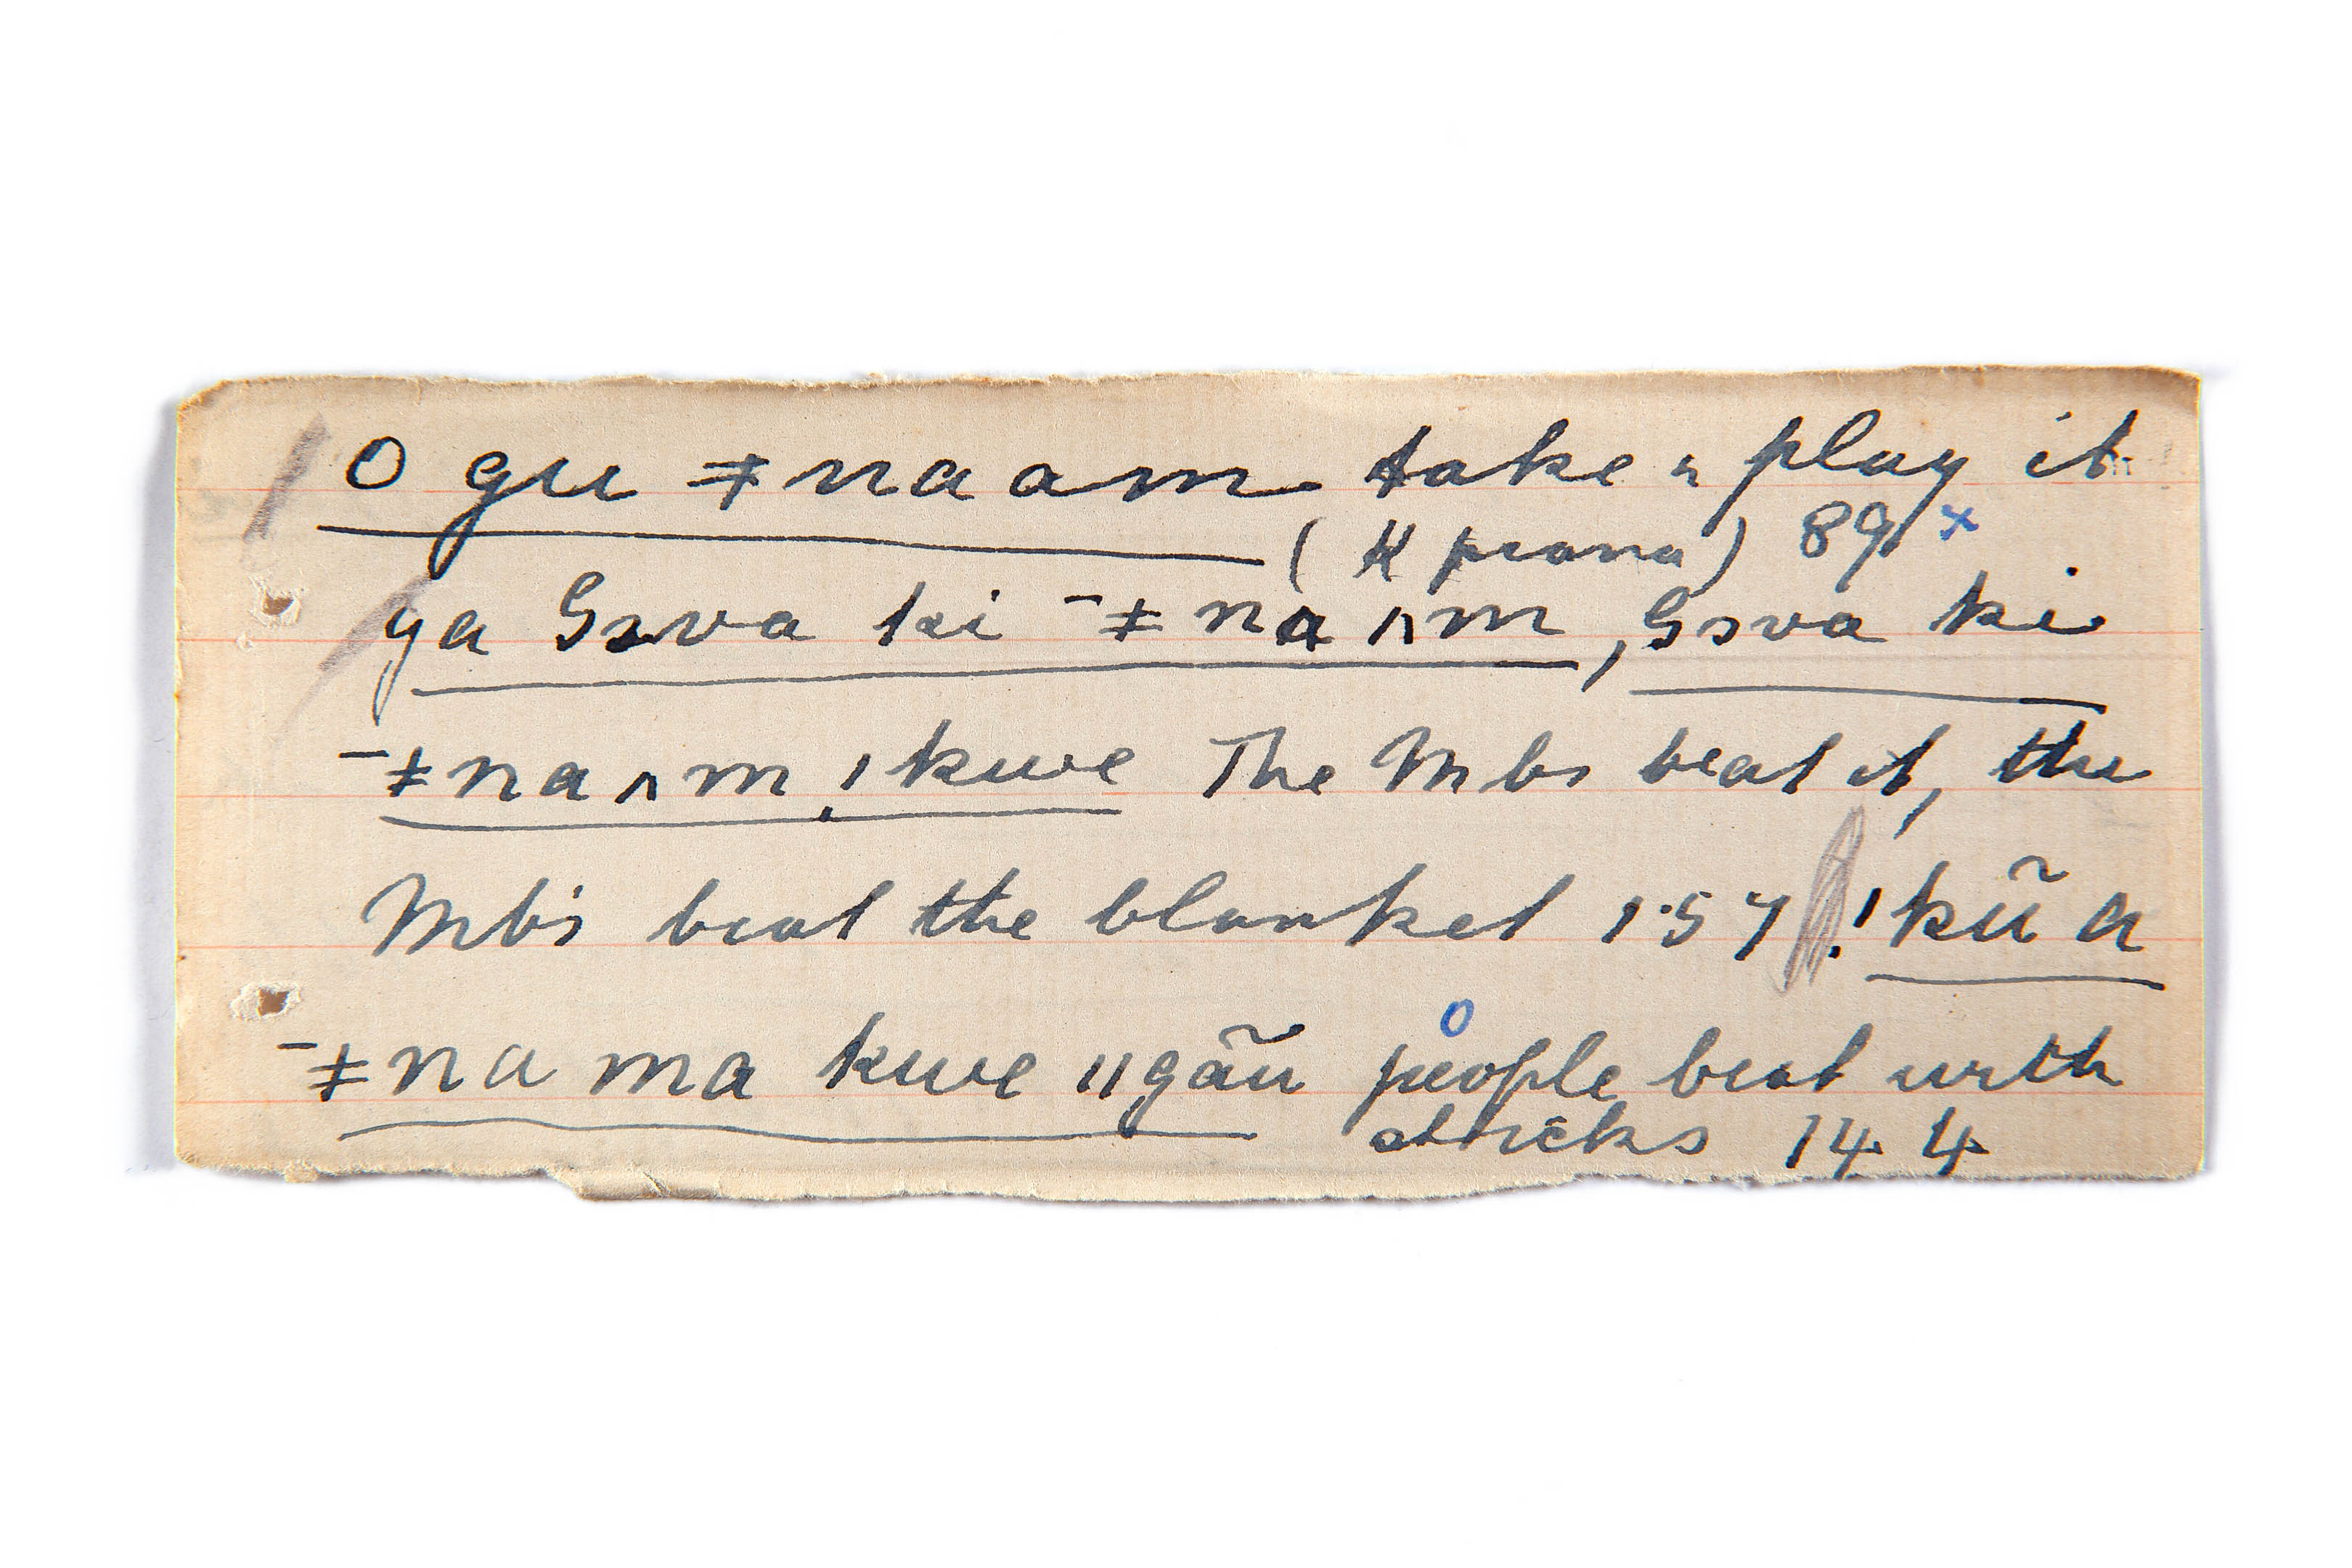 O gu ǂnaam take n play it
(K piana) 89 x
ga Gɔva ki ¯ǂnaʌm, Gɔva ki
¯ǂnaʌm, !kwe The Mbs beat it, the
Mbs beat the blanket 157 !kũa
¯ǂnama kwe ǁgãu people beat with
sticks 144